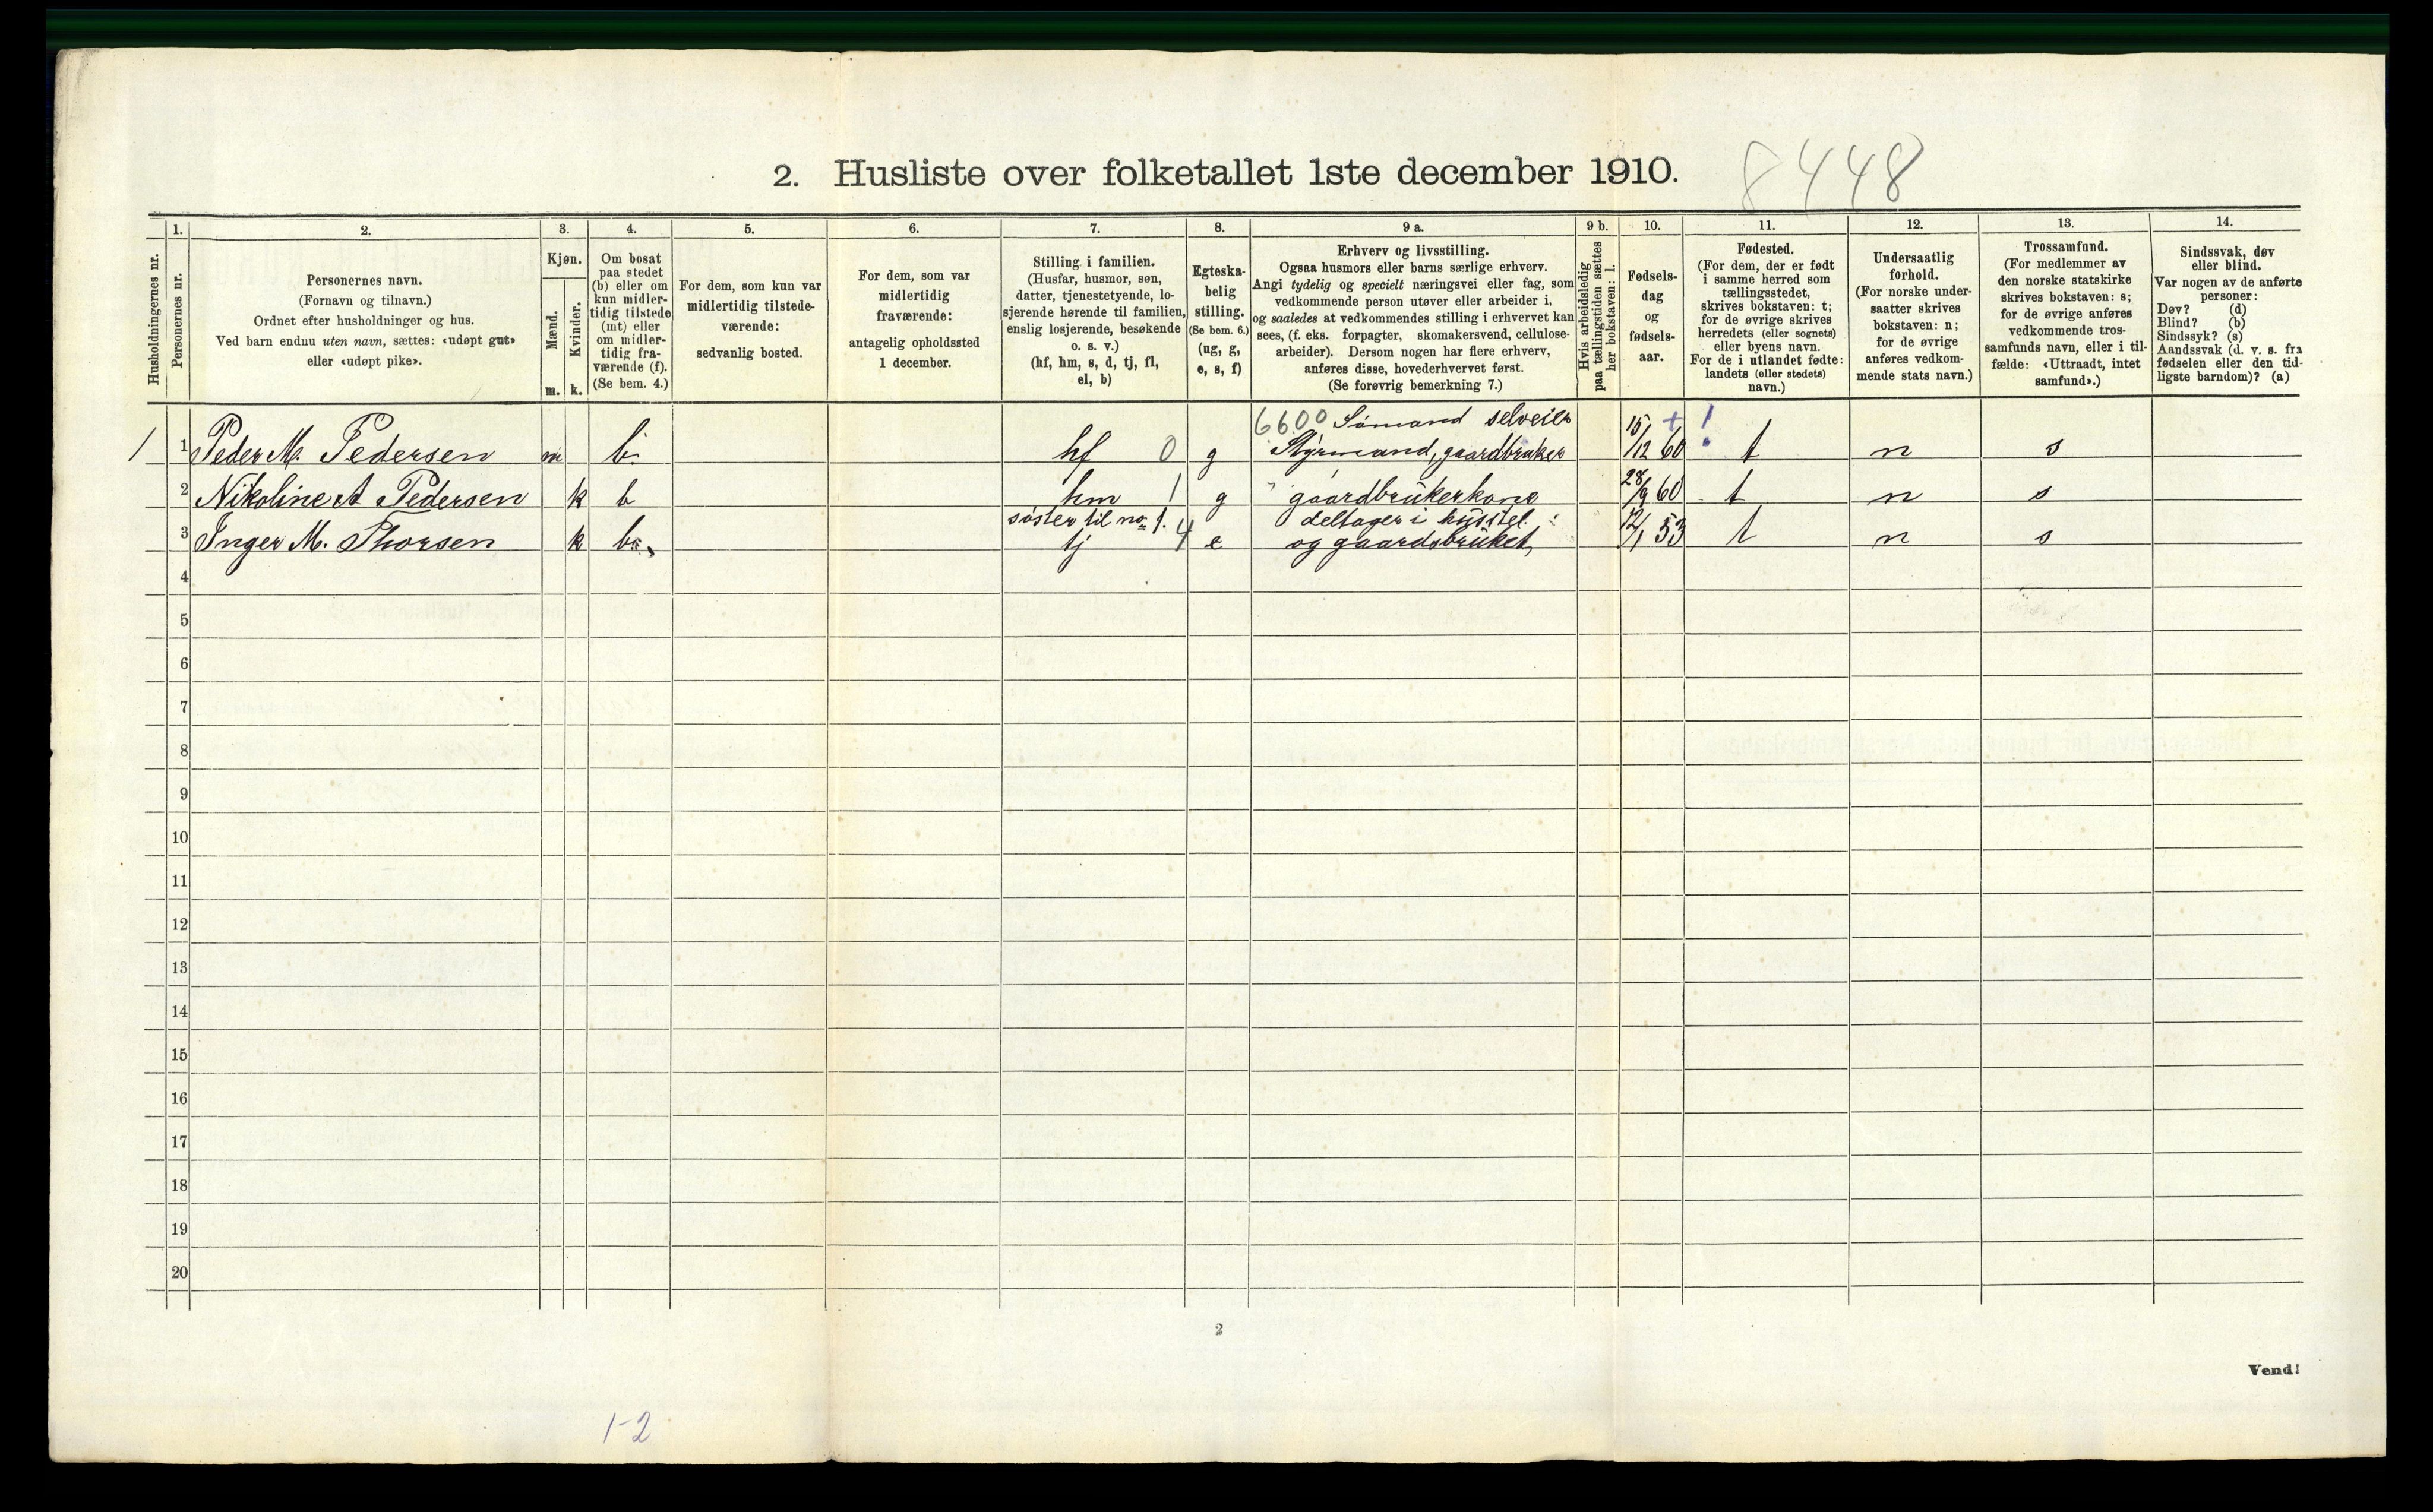 2. Husliste over folketallet 1ste december 1910.
8448
Husholdningernes nr.
1.
Personernes nr.
2.
Personernes navn.
(Fornavn og tilnavn.)
Ordnet efter husholdninger og hus.
Ved barn endnu uten navn, sættes: «udøpt gut»
eller «udøpt pike».
3.
Kjøn.
Mænd.
Kvinder.
m. k.
4.
Om bosat
paa stedet
(b) eller om
kun midler-
tidig tilstede
(mt) eller
om midler-
tidig fra-
værende (f).
(Se bem. 4.)
5.
For dem, som kun var
midlertidig tilstede-
værende:
sedvanlig bosted.
6.
For dem, som var
midlertidig
fraværende:
antagelig opholdssted
1 december.
7.
Stilling i familien.
(Husfar, husmor, søn,
datter, tjenestetyende, lo-
sjerende hørende til familien,
enslig losjerende, besøkende
o. s. v.)
(hf, hm, s, d, tj, fl,
el, b)
8.
Egteska-
belig
stilling.
(Se bem. 6.)
(ug, g,
e, s, f)
9 a.
Erhverv og livsstilling.
Ogsaa husmors eller barns særlige erhverv.
Angi tydelig og specielt næringsvei eller fag, som
vedkommende person utøver eller arbeider i,
og saaledes at vedkommendes stilling i erhvervet kan
sees, (f. eks. forpagter, skomakersvend, cellulose-
arbeider). Dersom nogen har flere erhverv,
anføres disse, hovederhvervet først.
(Se forøvrig bemerkning 7.)
9 b.
Hvis arbeidsledig
paa tællingstiden sættes
her bokstaven: l.
10.
Fødsels-
dag
og
fødsels-
aar.
11.
Fødested.
(For dem, der er født
i samme herred som
tællingsstedet,
skrives bokstaven: t;
for de øvrige skrives
herredets (eller sognets)
eller byens navn.
For de i utlandet fødte:
landets (eller stedets)
navn.)
12.
Undersaatlig
forhold.
(For norske under-
saatter skrives
bokstaven: n;
for de øvrige
anføres vedkom-
mende stats navn.)
13.
Trossamfund.
(For medlemmer av
den norske statskirke
skrives bokstaven: s;
for de øvrige anføres
vedkommende tros-
samfunds navn, eller i til-
fælde: «Uttraadt, intet
samfund».)
14.
Sindssvak, døv
eller blind.
Var nogen av de anførte
personer:
Døv? (d)
Blind? (b)
Sindssyk? (s)
Aandssvak (d. v. s. fra
fødselen eller den tid-
ligste barndom)? (a)
6600 Sømand selveier
1 1 Peder M. Pedersen m b hf 0 g Styrmand, gaardbruker 15/12 60 + ! t n s
2 Nikoline A Pedersen k b hm 1 g gaardbrukerkone 28/9 60 t n s
søster til no 1. deltager i husstel
3 Inger M. Thorsen k b tj 4 e og gaardsbruket 12/1 53 t n s
4
5
6
7
8
9
10
11
12
13
14
15
16
17
18
19
20
2
Vend!
1-2